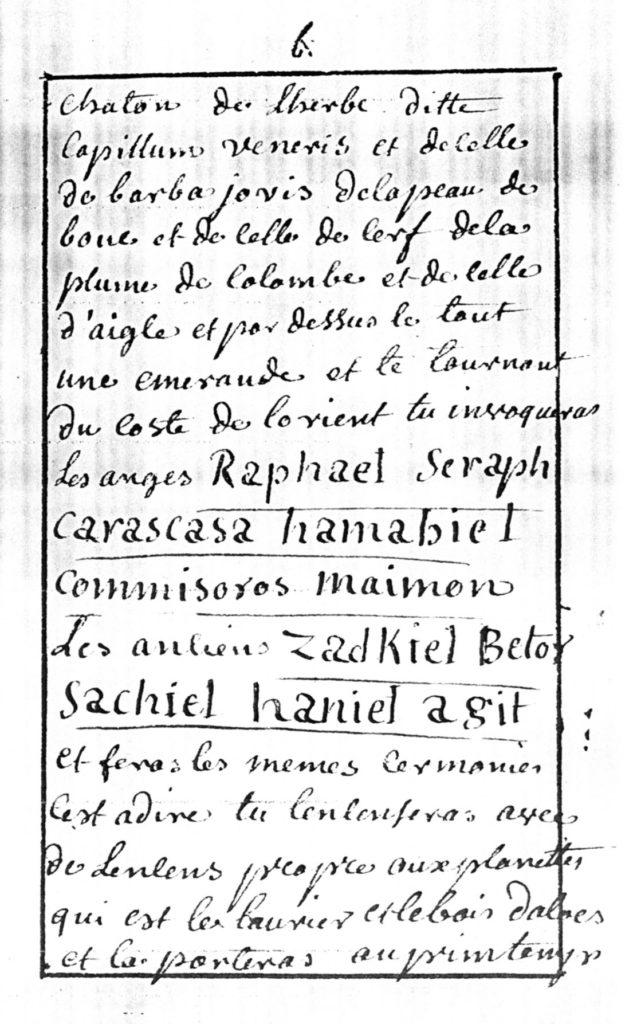 6.
chaton de lherbe ditte
Capillum veneris et de celle
de barba jovis de la peau de
bouc et de celle de cerf de la
plume de colombe et de celle
d'aigle et par dessus le tout
une emeraude et te tournant
du coste de lorient tu invoqueras
Les anges Raphael Seraph
Carascasa hamabiel
Commisoros maimon
Les anciens Zadkiel Betor
Sachiel haniel agit
et feras les memes cermonies
Cest adire tu lencenseras avec
de Lencens propre aux planettes
qui est le laurier et le bois daloes
et la porteras au printemps